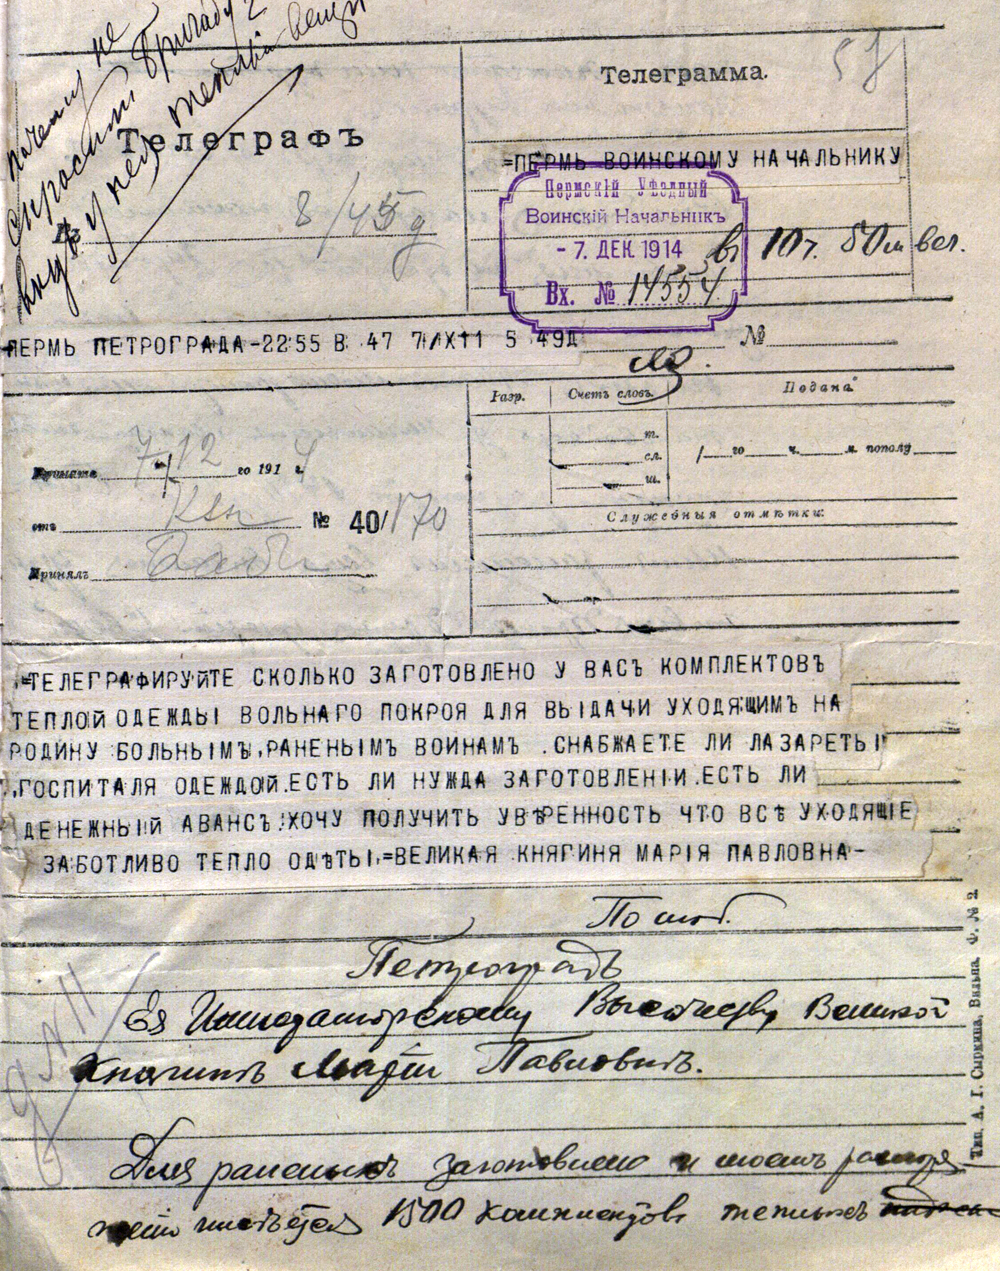 почему не
спросить бригаду
у нея теплыя вещи
Телеграфъ
8/45 д
Телеграмма.
57
=ПЕРМЬ ВОИНСКОМУ НАЧАЛЬНИКУ
Пермскій Уѣздный
Воинскій Начальникъ
- 7. ДЕК 1914
Вх. № 14554
въ 10 ч. 50 м веч.
ПЕРМЬ ПЕТРОГРАДА-22:55 В 47 7/XII 5 49Д
№
Разр.
Счетъ словъ.
Подана
т.
сл.
ш.
/ го ч. м. пополу
Служебныя отмѣтки:
Принята 7/12 го 191 4 г.
отъ Квп № 40/170
Принялъ
=ТЕЛЕГРАФИРУЙТЕ СКОЛЬКО ЗАГОТОВЛЕНО У ВАСЪ КОМПЛЕКТОВЪ
ТЕПЛОЙ ОДЕЖДЫ ВОЛЬНАГО ПОКРОЯ ДЛЯ ВЫДАЧИ УХОДЯЩИМЪ НА
РОДИНУ БОЛЬНЫМЪ,РАНЕНЫМЪ ВОИНАМЪ .СНАБЖАЕТЕ ЛИ ЛАЗАРЕТЫ
,ГОСПИТАЛЯ ОДЕЖДОЙ.ЕСТЬ ЛИ НУЖДА ЗАГОТОВЛЕНІИ.ЕСТЬ ЛИ
ДЕНЕЖНЫЙ АВАНСЪ!ХОЧУ ПОЛУЧИТЬ УВѢРЕННОСТЬ ЧТО ВСѢ УХОДЯЩІЕ
ЗАБОТЛИВО ТЕПЛО ОДѢТЫ.=ВЕЛИКАЯ КНЯГИНЯ МАРІЯ ПАВЛОВНА-
Петроградъ
Ея Императорскому Высочеству Великой
Княгинѣ Маріи Павловнѣ.
Для раненыхъ заготовлено и моемъ распоря
женіи имѣется 1500 комплектовъ теплыхъ
Тип. А. Г. Сыркина, Вильна. Ф. № 2.